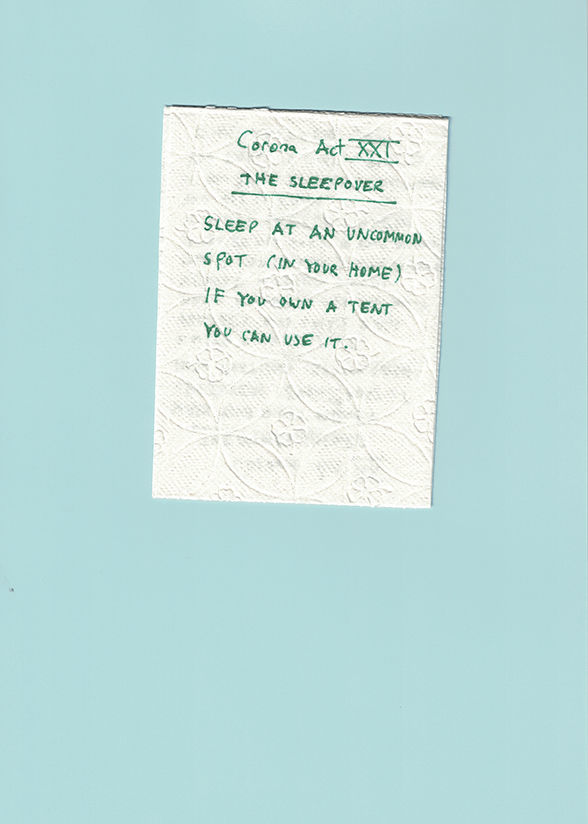 Corona Act XXI
THE SLEEPOVER
SLEEP AT AN UNCOMMON
SPOT (IN YOUR HOME)
IF YOU OWN A TENT
YOU CAN USE IT.